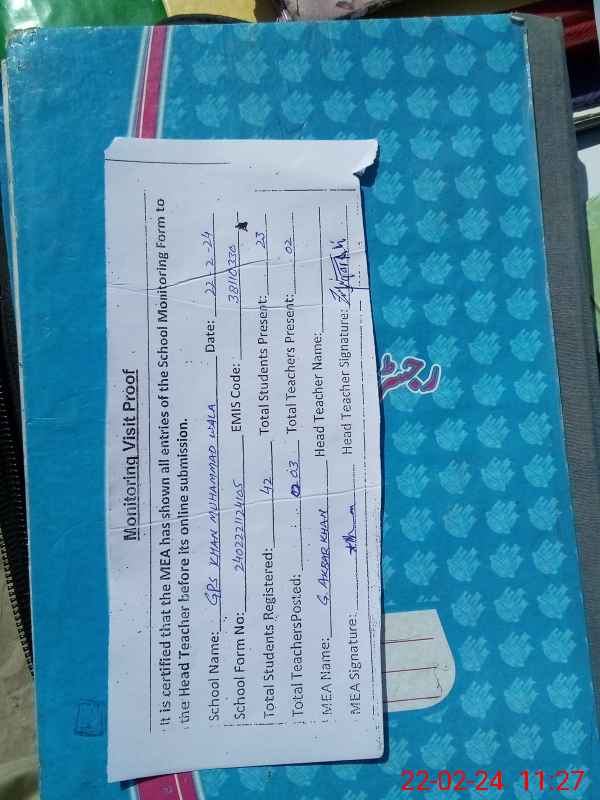 Monitoring Visit Proof
It is certified that the MEA has shown all entries of the School Monitoring Form to
the Head Teacher before its online submission.
School Name: GPS KHAN MUHAMMAD WALA Date: 22-2-24
School Form No: 2402221124105 EMIS Code: 38110330
Total Students Registered: 42 Total Students Present: 23
Total TeachersPosted: 03 Total Teachers Present: 02
MEA Name: G. AKBAR KHAN Head Teacher Name:
MEA Signature: Head Teacher Signature:
رجسٹر
22-02-24 11:27